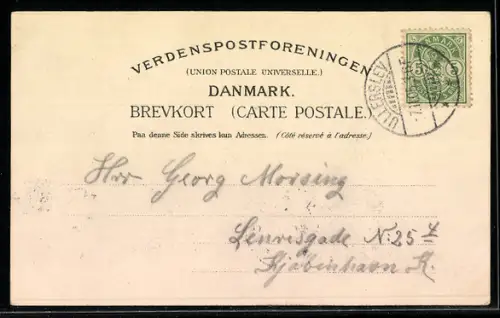 VERDENSPOSTFORENINGEN
(UNION POSTALE UNIVERSELLE.)
DANMARK.
BREVKORT (CARTE POSTALE.)
Paa denne Side skrives kun Adressen. (Côté réservé à l'adresse.)
DANMARK
5 5
ULLERSLEV
Hrr Georg Morsing
N. 25
Kjöbenhavn K.